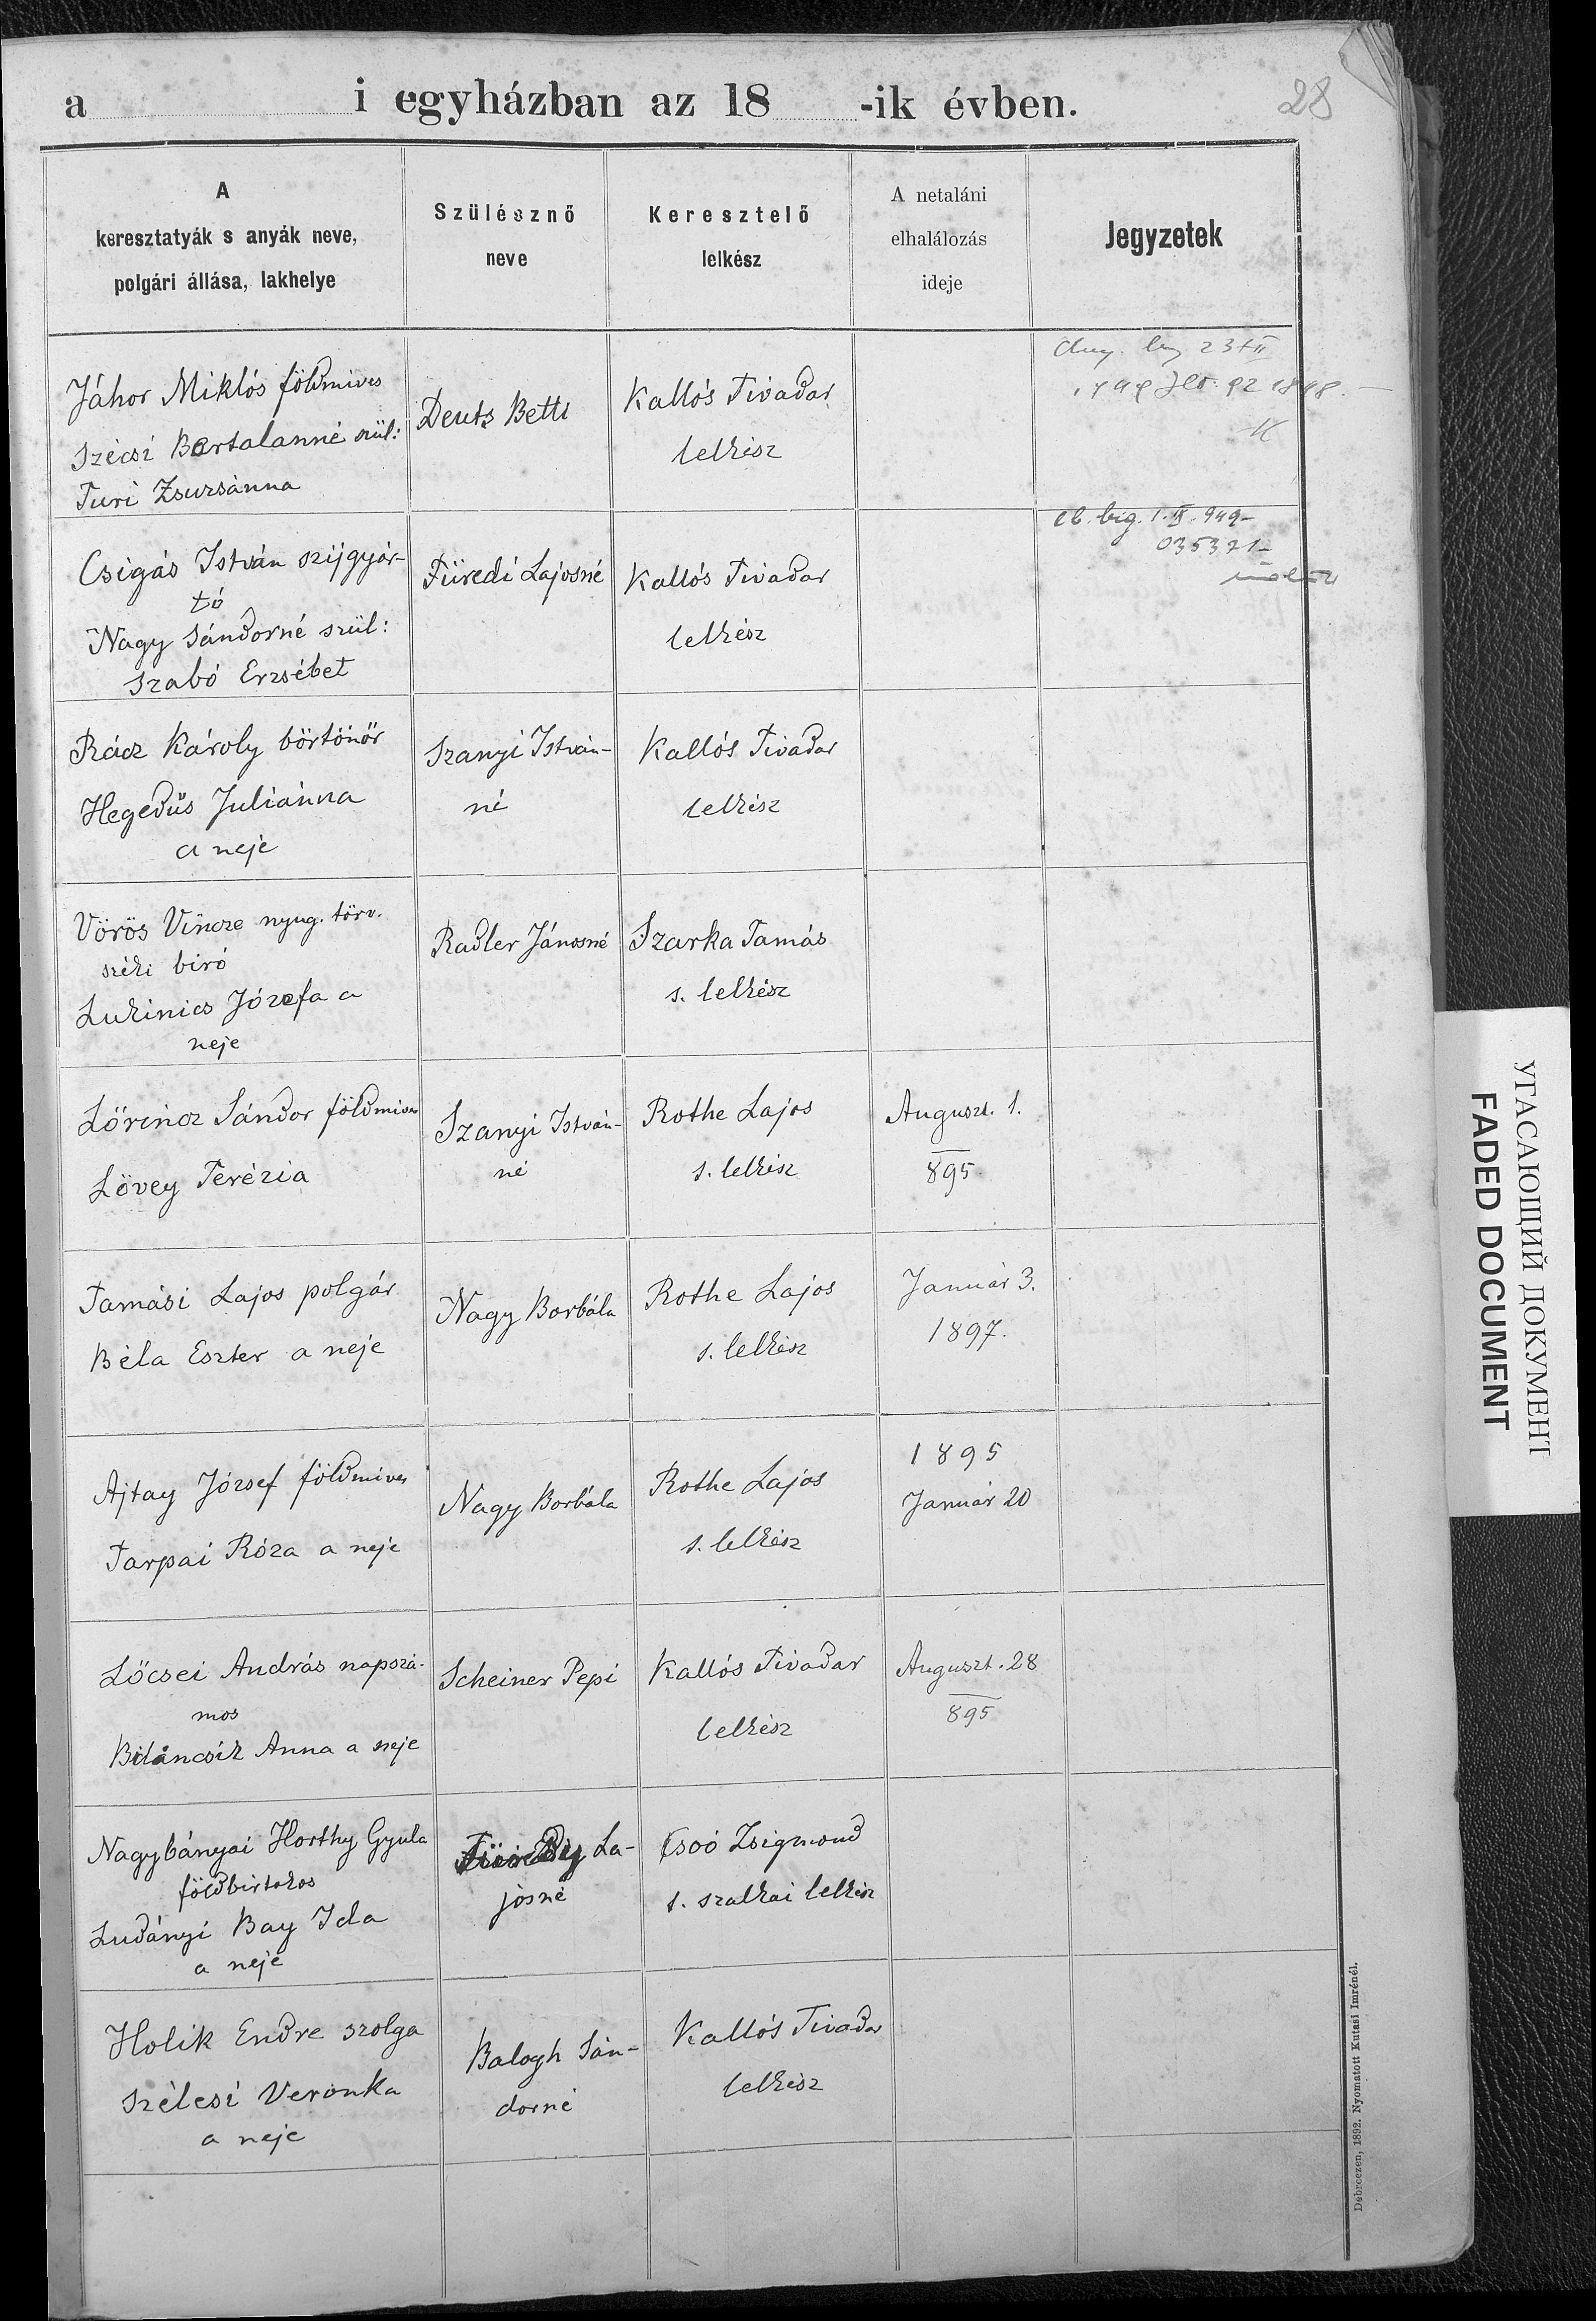 a i egyházban az 18 -ik évben.
28
A
keresztatyák s anyák neve,
polgári állása, lakhelye
Szülésznő
neve
Keresztelő
lelkész
A netaláni
elhalálozás
ideje
Jegyzetek
Jáhor Miklós földmives
Szécsi Bertalanné szül:
Turi Zsuzsánna
Deuts Betti
Kallós Tivadar
lelkész
23 XII
Csigás István szijgyár-
tó
Nagy Sándorné szül:
Szabó Erzsébet
Füredi Lajosné
Kallós Tivadar
lelkész
eb. big. 1. IX. 949-
035371-
Rácz Károly börtönőr
Hegedűs Juliánna
a neje
Szanyi István-
né
Kallós Tivadar
lelkész
Vörös Vincze nyug. törv.
széki biró
Lukinics Józefa a
neje
Radler Jánosné
Szarka Tamás
s. lelkész
Lőrincz Sándor földmives
Lövey Terézia
Szanyi István-
né
Rothe Lajos
s. lelkész
Auguszt. 1.
895
Tamási Lajos polgár
Béla Eszter a neje
Nagy Borbála
Rothe Lajos
s. lelkész
Január 3.
1897.
Ajtay József földmives
Tarpai Róza a neje
Nagy Borbála
Rothe Lajos
s. lelkész
1895
Január 20
Lőcsei András napszá-
mos
Biláncsik Anna a neje
Scheiner Pepi
Kallós Tivadar
lelkész
Auguszt. 28
895
Nagybányai Horthy Gyula
földbirtokos
Ludányi Bay Ida
a neje
Füredy La-
josné
Csoó Zsigmond
t. szalkai lelkész
Holik Endre szolga
Szélesi Veronka
a neje
Balogh Sán-
dorné
Kallós Tivadar
lelkész
Debreczen, 1892. Nyomatott Kutasi Imrénél.
УГАСАЮЩИЙ ДОКУМЕНТ
FADED DOCUMENT